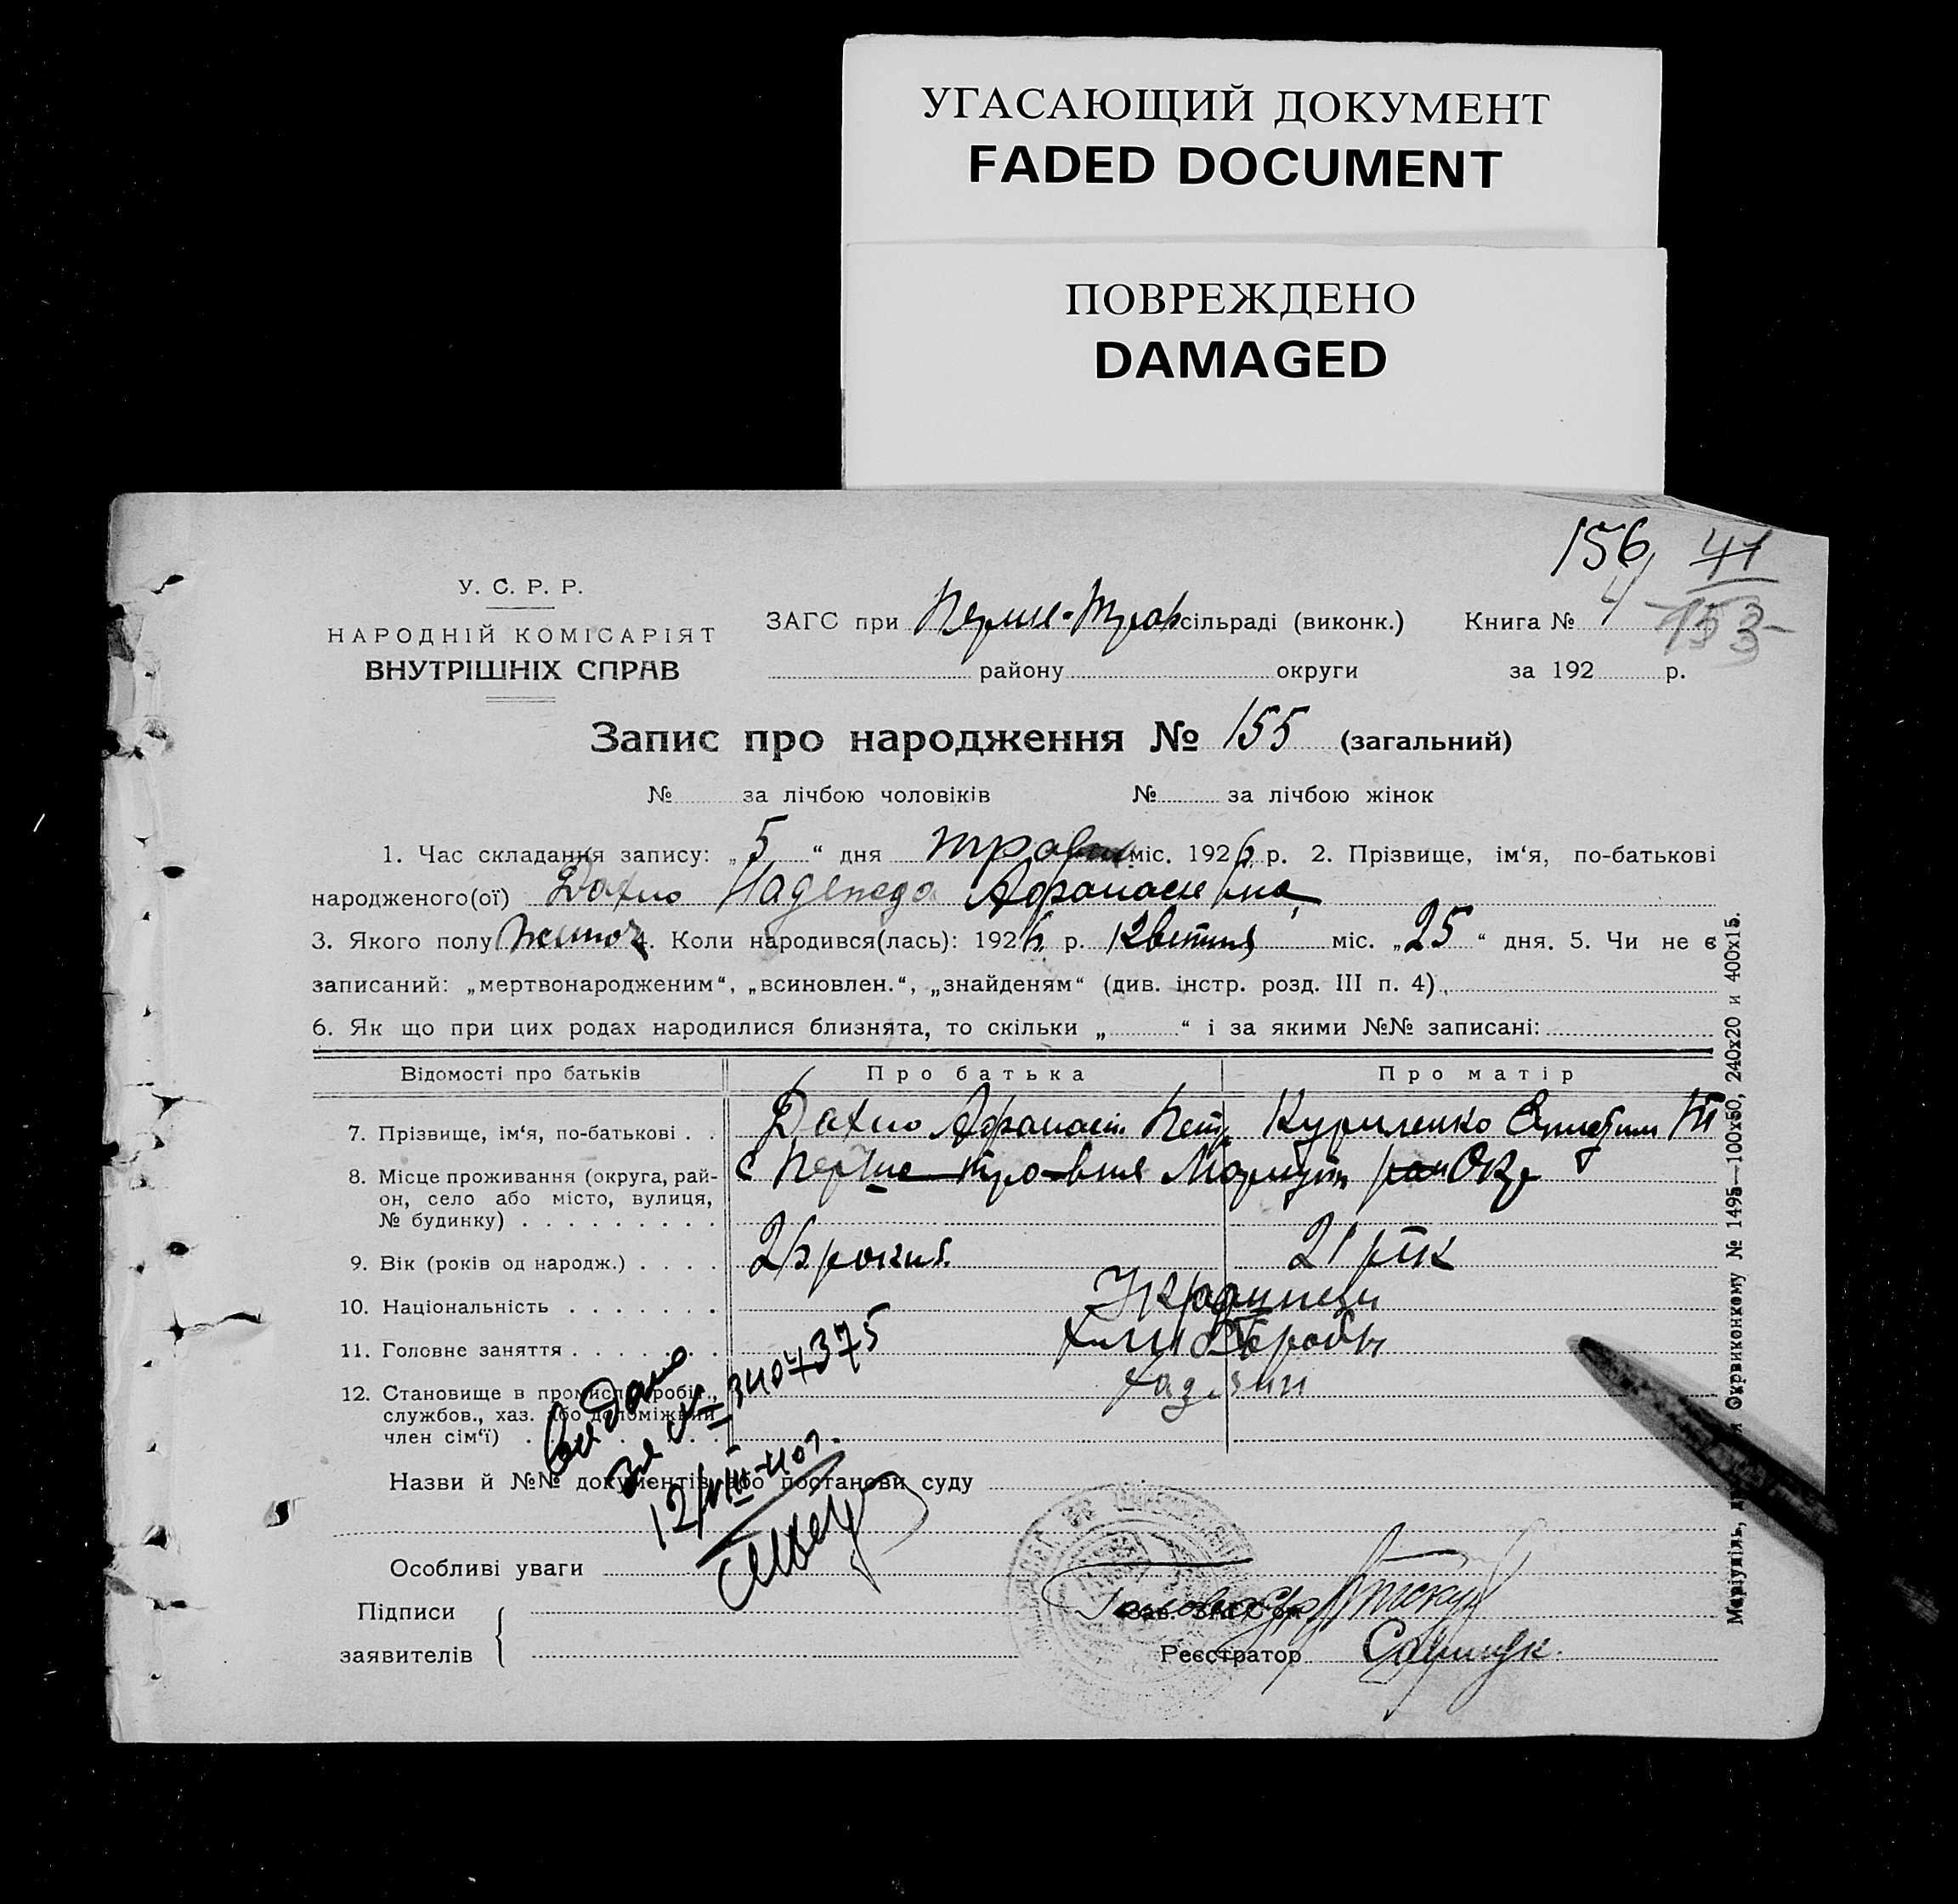 УГАСАЮЩИЙ ДОКУМЕНТ
FADED DOCUMENT
ПОВРЕЖДЕНО
DAMAGED
156 41
153
У. С. Р. Р.
НАРОДНІЙ КОМІСАРІЯТ
ВНУТРІШНІХ СПРАВ
ЗАГС при Перше-Трав сільраді (виконк.) Книга № 4
району округи за 192 р.
Запис про народження № 155 (загальний)
№ за лічбою чоловіків № за лічбою жінок
1. Час складання запису: „ 5 “ дня травня міс. 1926 р. 2. Прізвище, ім‘я, по-батькові
народженого(ої) Дахно Надежда Афанасиевна
3. Якого полу жиноч 4. Коли народився(лась): 1926 р. Квітня міс. „ 25 “ дня. 5. Чи не є
записаний: „мертвонародженим“, „всиновлен.“, „знайденям“ (див. інстр. розд. III п. 4)
6. Як що при цих родах народилися близнята, то скільки „ “ і за якими №№ записані:
Відомості про батьків Про батька Про матір
7. Прізвище, ім‘я, по-батькові . . Дахно Афанасій Петр Куриленко
8. Місце проживання (округа, рай-
он, село або місто, вулиця,
№ будинку) . . . . . . . . . с Перше травня Маріуп Окр
9. Вік (років од народж.) . . . . 26 рокив 21 рік
10. Національність . . . . . . . Українци
11. Головне заняття . . . . . . . хліборобы
12. Становище в промисл. (робіт.,
службов., хаз. або допоміжний
член сім‘ї) .
Видано
за № 3407375
12/VIII-40 г.
Назви й №№ документів або постанови суду
Особливі уваги
Підписи
заявителів
Зав. ЗАГС‘ом
Реєстратор
Маріупіль, Окрвиконкому № 1495—100х50, 240х20 и 400х15.